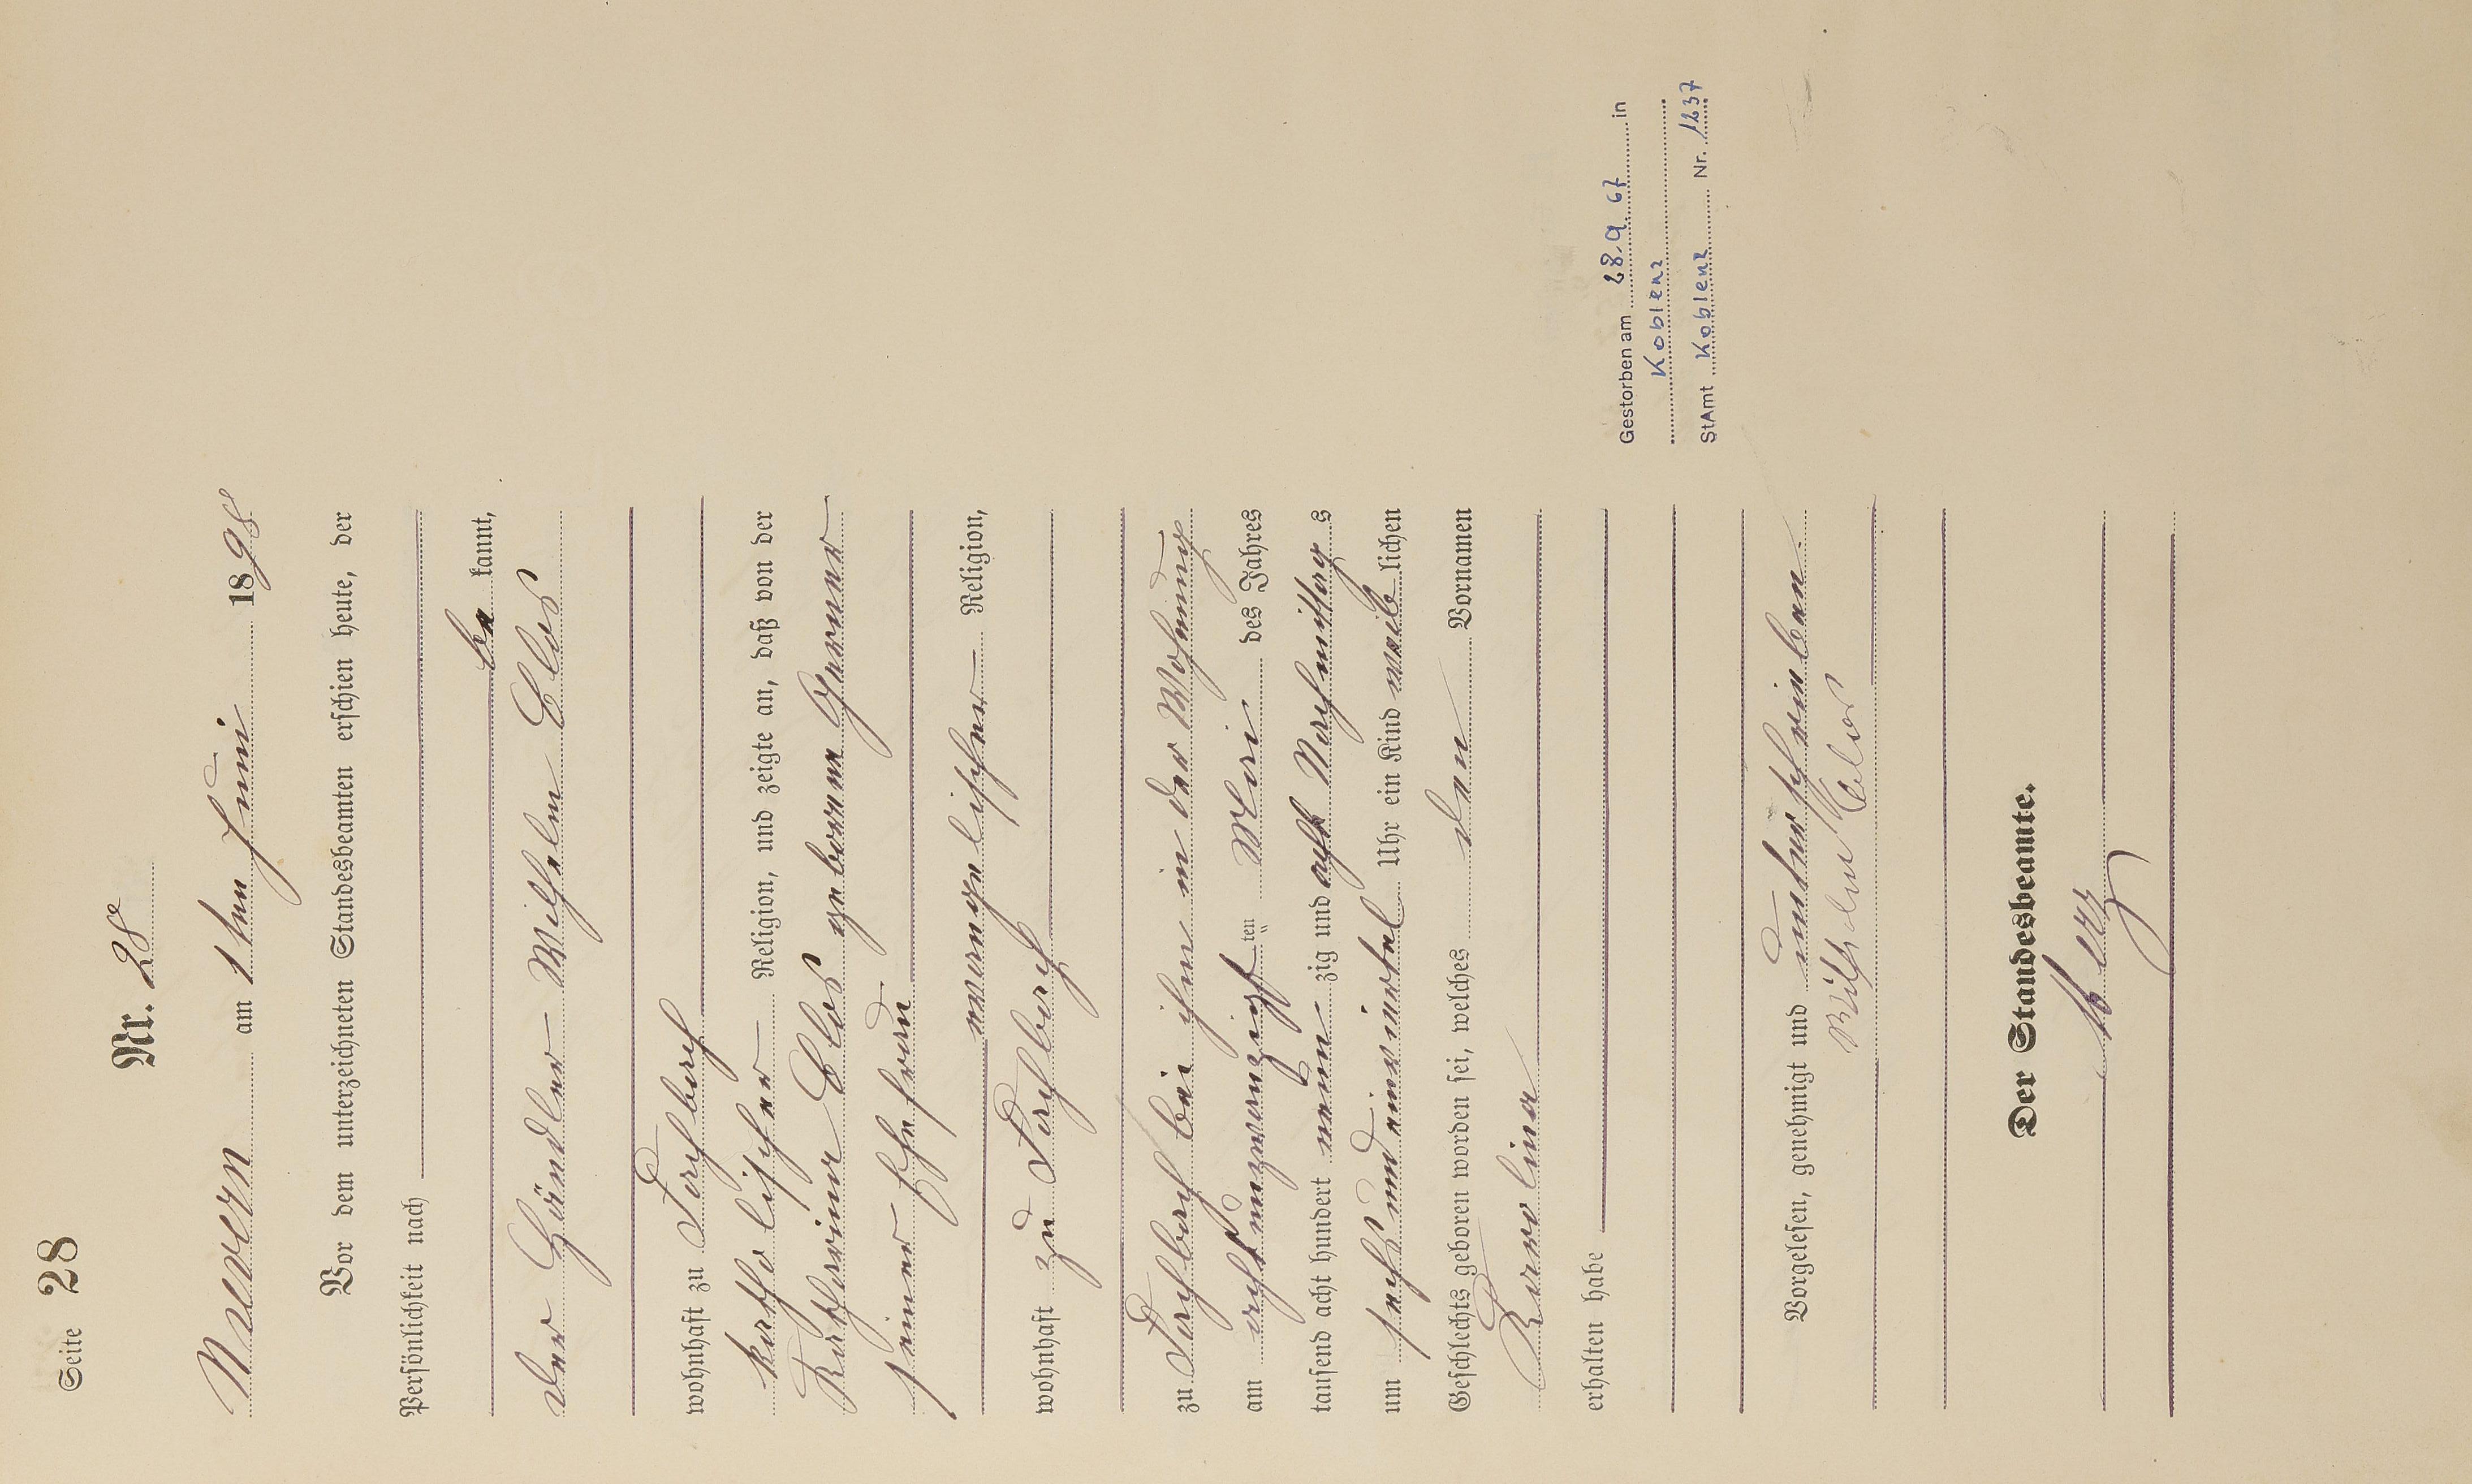 Seite 28
Nr. 28
Mayen am 1ten Juni 1898
Vor dem unterzeichneten Standesbeamten erschien heute, der
Persönlichkeit nach
be kannt,
der Händler Wilhelm Clos
wohnhaft zu
katholischer Religion, und zeigte an, daß von der
Katharina Clos geborene
seiner Ehefrau
evangelischer Religion,
wohnhaft zu
zu bei ihm in der Wohnung
am achtundzwanzigsten ten Mai des Jahres
tausend acht hundert neun zig und acht Nachmittag s
um sechs und einviertel Uhr ein Kind weib lichen
Geschlechts geboren worden sei, welches den Vornamen
Karolina
erhalten habe
Gestorben am 28.9.67 in
Koblenz
StAmt Koblenz Nr. 1237
Vorgelesen, genehmigt und unterschrieben
Wilhelm Clos
Der Standesbeamte.